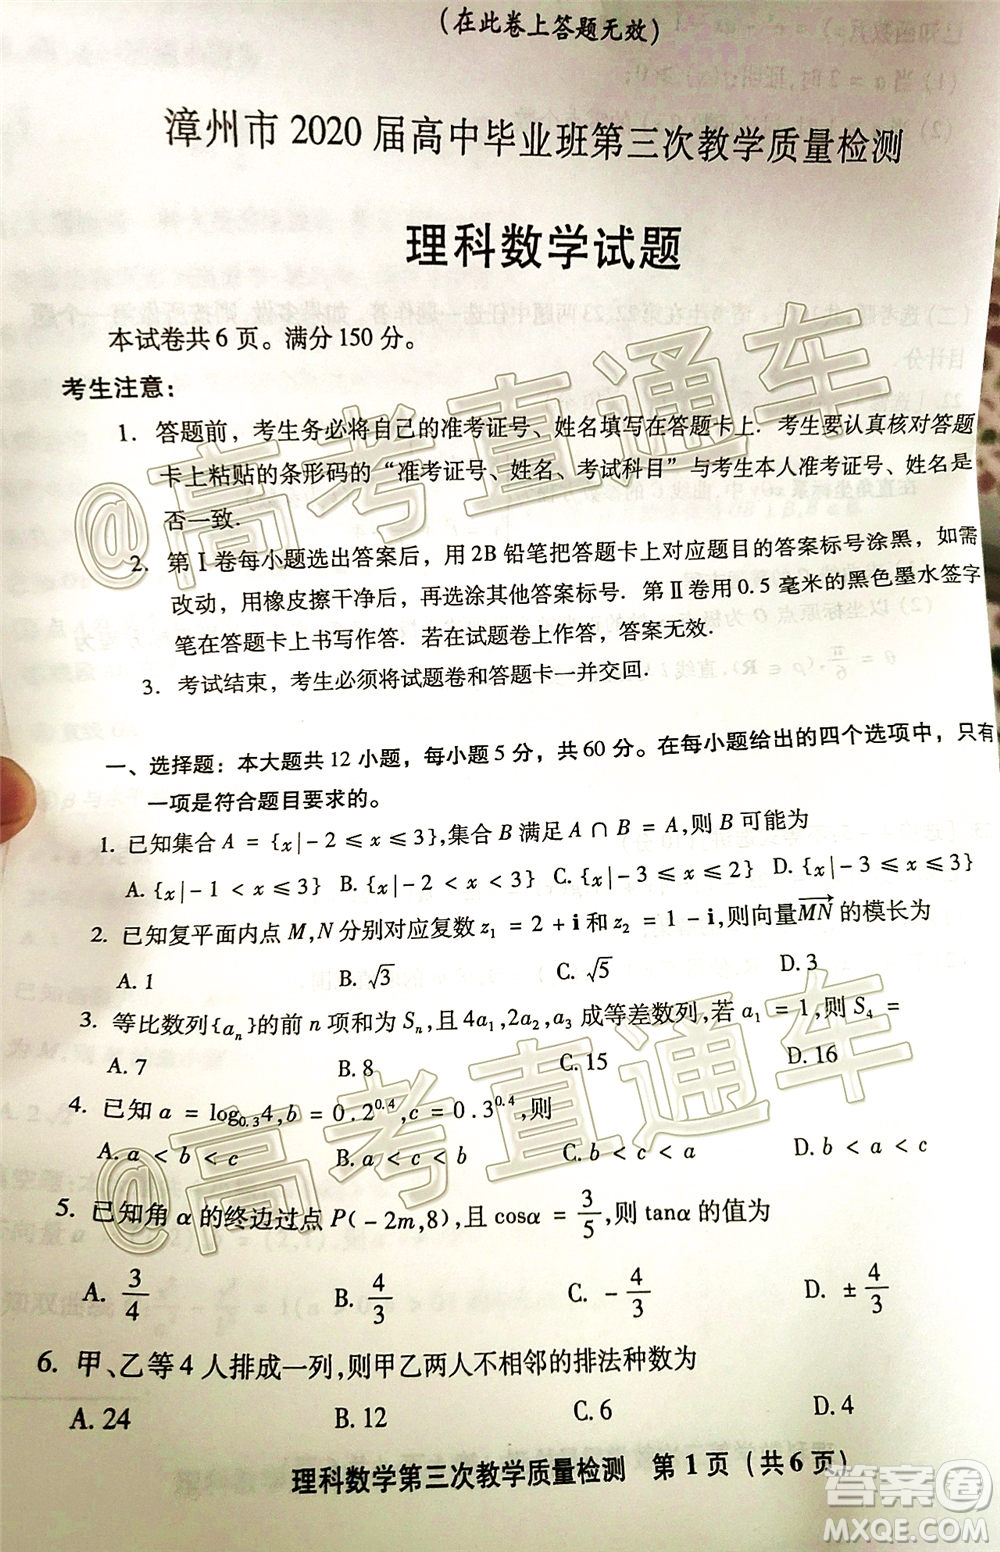 (在此卷上答题无效)
漳州市2020届高中毕业班第三次教学质量检测
理科数学试题
本试卷共6页。满分150分。
考生注意：
1. 答题前，考生务必将自己的准考证号、姓名填写在答题卡上. 考生要认真核对答题
卡上粘贴的条形码的“准考证号、姓名、考试科目”与考生本人准考证号、姓名是
否一致.
2. 第Ⅰ卷每小题选出答案后，用2B铅笔把答题卡上对应题目的答案标号涂黑，如需
改动，用橡皮擦干净后，再选涂其他答案标号. 第Ⅱ卷用0.5毫米的黑色墨水签字
笔在答题卡上书写作答. 若在试题卷上作答，答案无效.
3. 考试结束，考生必须将试题卷和答题卡一并交回.
一、选择题：本大题共12小题，每小题5分，共60分。在每小题给出的四个选项中，只有
一项是符合题目要求的。
1. 已知集合 A = {x|-2 ≤ x ≤ 3},集合 B 满足 A ∩ B = A,则 B 可能为
A. {x|-1 < x ≤ 3} B. {x|-2 < x < 3} C. {x|-3 ≤ x ≤ 2} D. {x|-3 ≤ x ≤ 3}
2. 已知复平面内点 M,N 分别对应复数 z₁ = 2 + i 和 z₂ = 1 - i,则向量 $\overrightarrow{MN}$ 的模长为
A. 1 B. √3 C. √5 D. 3
3. 等比数列{aₙ}的前 n 项和为 Sₙ,且 4a₁,2a₂,a₃ 成等差数列,若 a₁ = 1,则 S₄ =
A. 7 B. 8 C. 15 D. 16
4. 已知 a = log₀.₃4,b = 0.2^{0.4},c = 0.3^{0.4},则
A. a < b < c B. a < c < b C. b < c < a D. b < a < c
5. 已知角 α 的终边过点 P(-2m,8),且 cosα = 3/5,则 tanα 的值为
A. 3/4 B. 4/3 C. -4/3 D. ±4/3
6. 甲、乙等4人排成一列,则甲乙两人不相邻的排法种数为
A. 24 B. 12 C. 6 D. 4
理科数学第三次教学质量检测 第1页（共6页）
@高考直通车
@高考直通车
答案圈
MXQE.COM